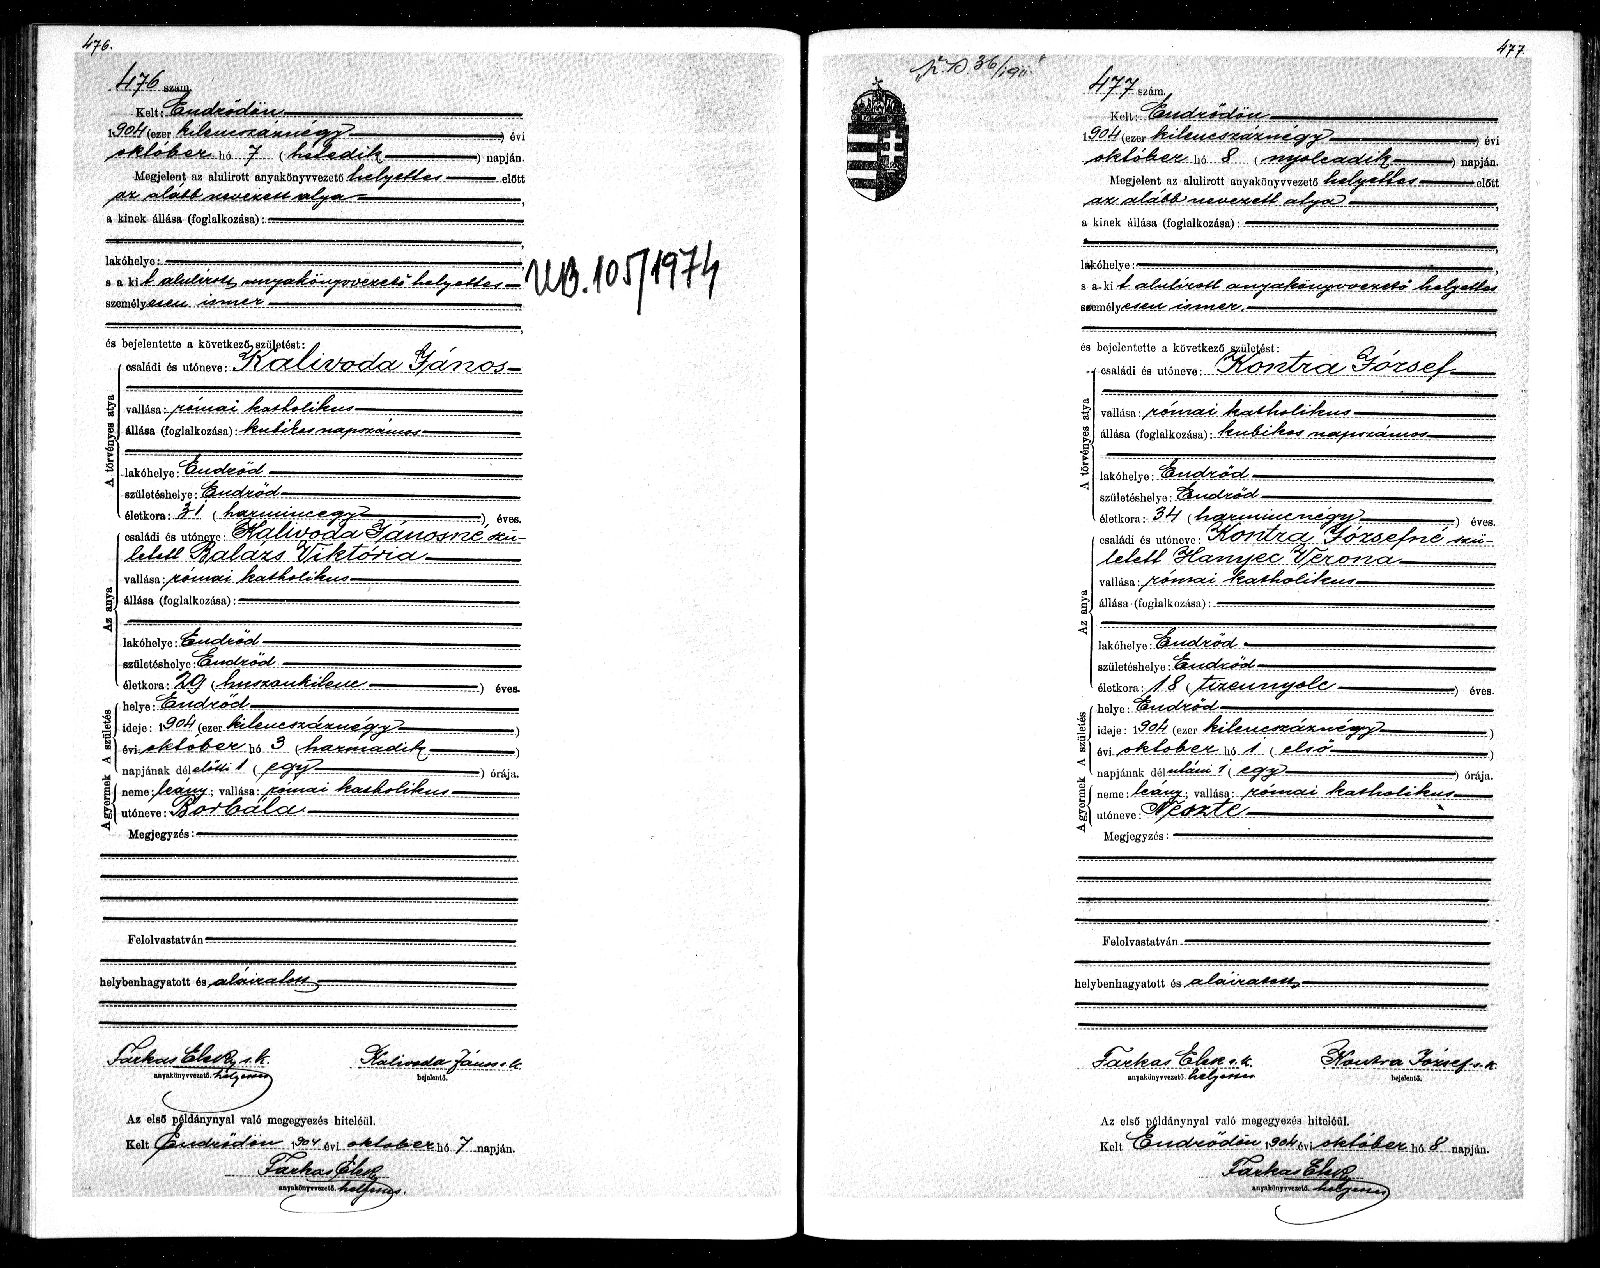 476.
476 szám.
Kelt: Endrődön
1904 (ezer kilencszáznégy) évi
október hó 7 (hetedik) napján.
Megjelent az alulirott anyakönyvvezető helyettes előtt
az alább nevezett atya,
a kinek állása (foglalkozása):
lakóhelye:
s a kit alulirott anyakönyvvezető helyettes
személyesen ismer
és bejelentette a következő születést:
A törvényes atya
családi és utóneve: Kalivoda János
vallása: római katholikus
állása (foglalkozása): kubikos napszámos
lakóhelye: Endrőd
születéshelye: Endrőd
életkora: 31 (harmincegy) éves.
Az anya
családi és utóneve: Kalivoda Jánosné szü-
letett Balázs Viktória
vallása: római katholikus
állása (foglalkozása):
lakóhelye: Endrőd
születéshelye: Endrőd
életkora: 29 (huszonkilenc) éves.
A születés
helye: Endrőd
ideje: 1904 (ezer kilencszáznégy)
évi október hó 3 (harmadik)
napjának délelőtti 1 (egy) órája.
A gyermek
neme: leány; vallása: római katholikus
utóneve: Borbála
Megjegyzés:
Felolvastatván
helybenhagyatott és aláiratott
Farkas Elek s.k. Kalivoda János s.k.
anyakönyvvezető. helyettes bejelentő.
Az első példánynyal való megegyezés hiteléül.
Kelt Endrődön 1904 évi október hó 7 napján.
Farkas Elek
anyakönyvvezető. helyettes.
UB.105/1974
36/1911
477
477 szám.
Kelt: Endrődön
1904 (ezer kilencszáznégy) évi
október hó 8 (nyolcadik) napján.
Megjelent az alulirott anyakönyvvezető helyettes előtt
az alább nevezett atya,
a kinek állása (foglalkozása):
lakóhelye:
s a kit alulirott anyakönyvvezető helyettes
személyesen ismer,
és bejelentette a következő születést:
A törvényes atya
családi és utóneve: Kontra József
vallása: római katholikus
állása (foglalkozása): kubikos napszámos
lakóhelye: Endrőd
születéshelye: Endrőd
életkora: 34 (harmincnégy) éves.
Az anya
családi és utóneve: Kontra Józsefné szü-
letett Hanyec Verona
vallása: római katholikus
állása (foglalkozása):
lakóhelye: Endrőd
születéshelye: Endrőd
életkora: 18 (tizennyolc) éves.
A születés
helye: Endrőd
ideje: 1904 (ezer kilencszáznégy)
évi október hó 1 (első)
napjának délutáni 1 (egy) órája.
A gyermek
neme: leány; vallása: római katholikus
utóneve: Neszte
Megjegyzés:
Felolvastatván
helybenhagyatott és aláiratott
Farkas Elek s.k. Kontra József s.k.
anyakönyvvezető. helyettes bejelentő.
Az első példánynyal való megegyezés hiteléül.
Kelt Endrődön 1904 évi október hó 8 napján.
Farkas Elek
anyakönyvvezető. helyettes